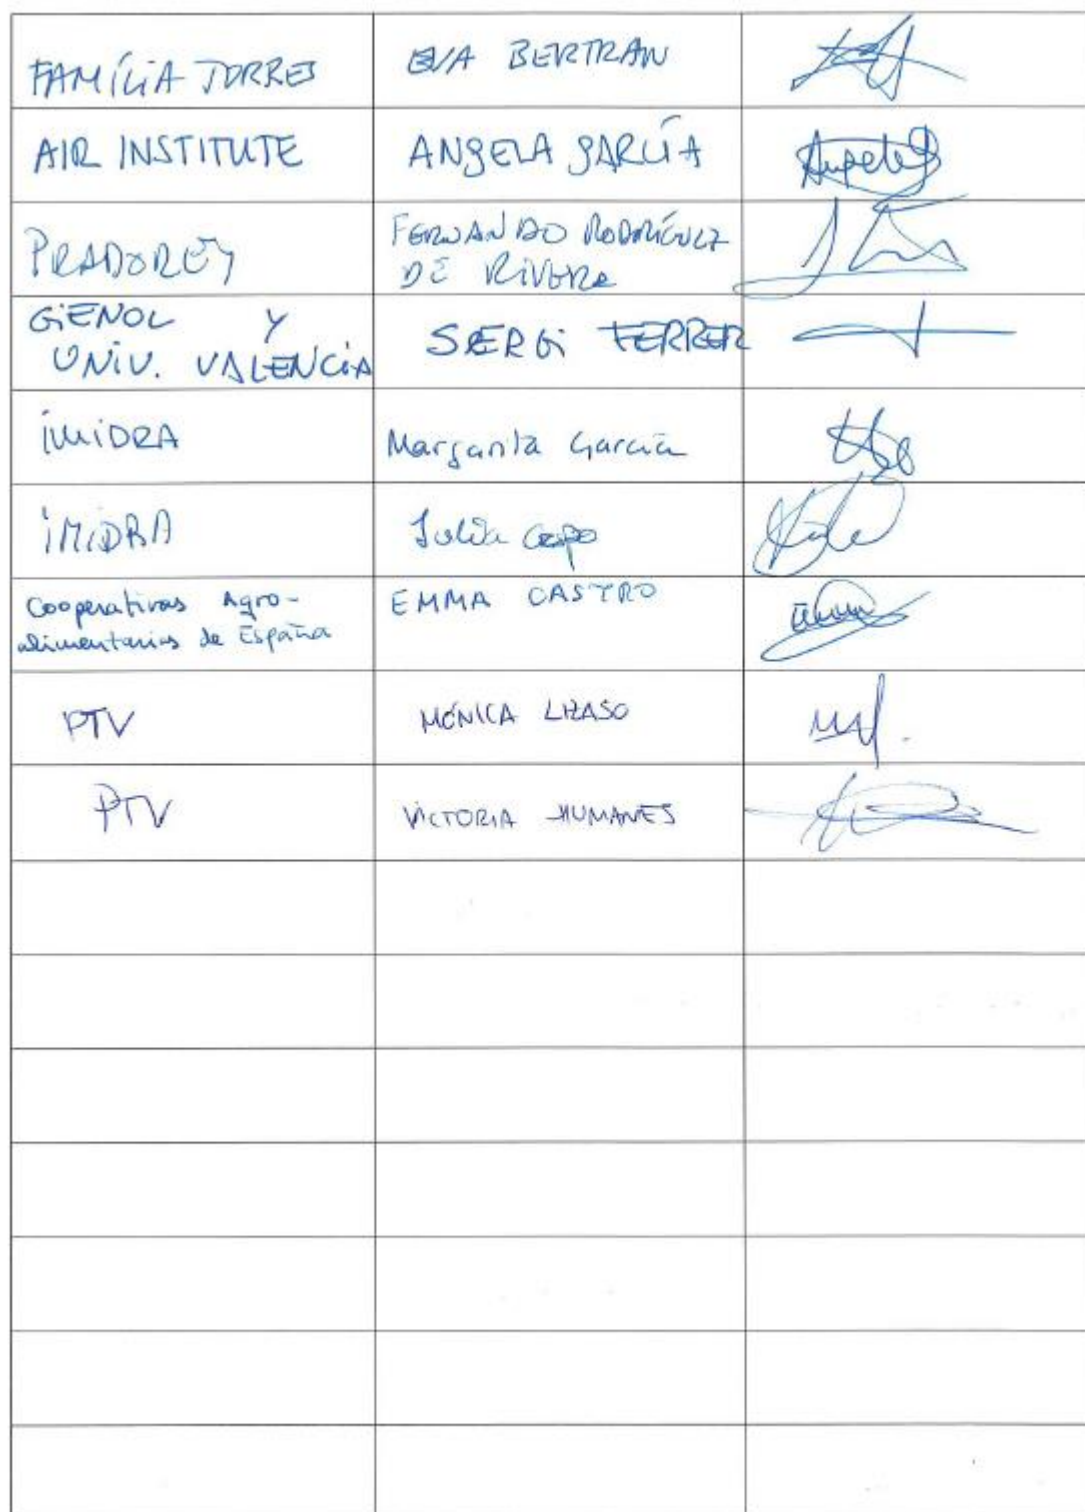 FAMÍLIA TORRES EVA BERTRAN
AIR INSTITUTE ANGELA GARCÍA
PRADOREY FERNANDO RODRÍGUEZ
DE RIVERA
GIENOL Y
UNIV. VALENCIA SERGI FERRER
IMIDRA Margarita García
IMIDRA Julia Crespo
Cooperativas Agro-
alimentarias de España EMMA CASTRO
PTV MÓNICA LIZASO
PTV VICTORIA HUMANES